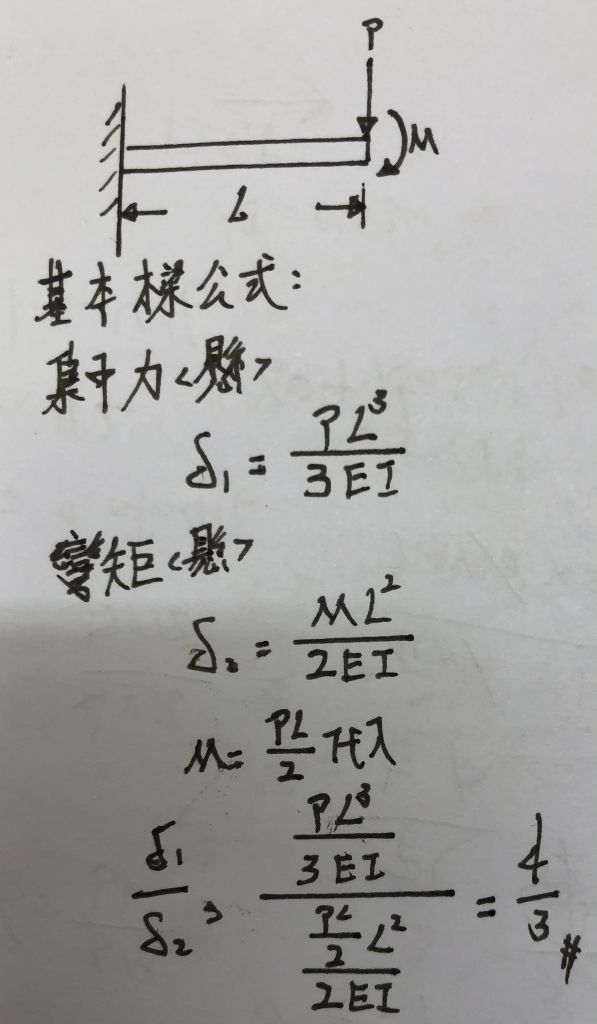 P
M
L
基本樑公式:
集中力<懸>
δ₁ = PL³/3EI
彎矩<懸>
δ₂ = ML²/2EI
M = PL/2 代入
δ₁/δ₂, (PL³/3EI)/((PL/2)L²/2EI) = 4/3 #